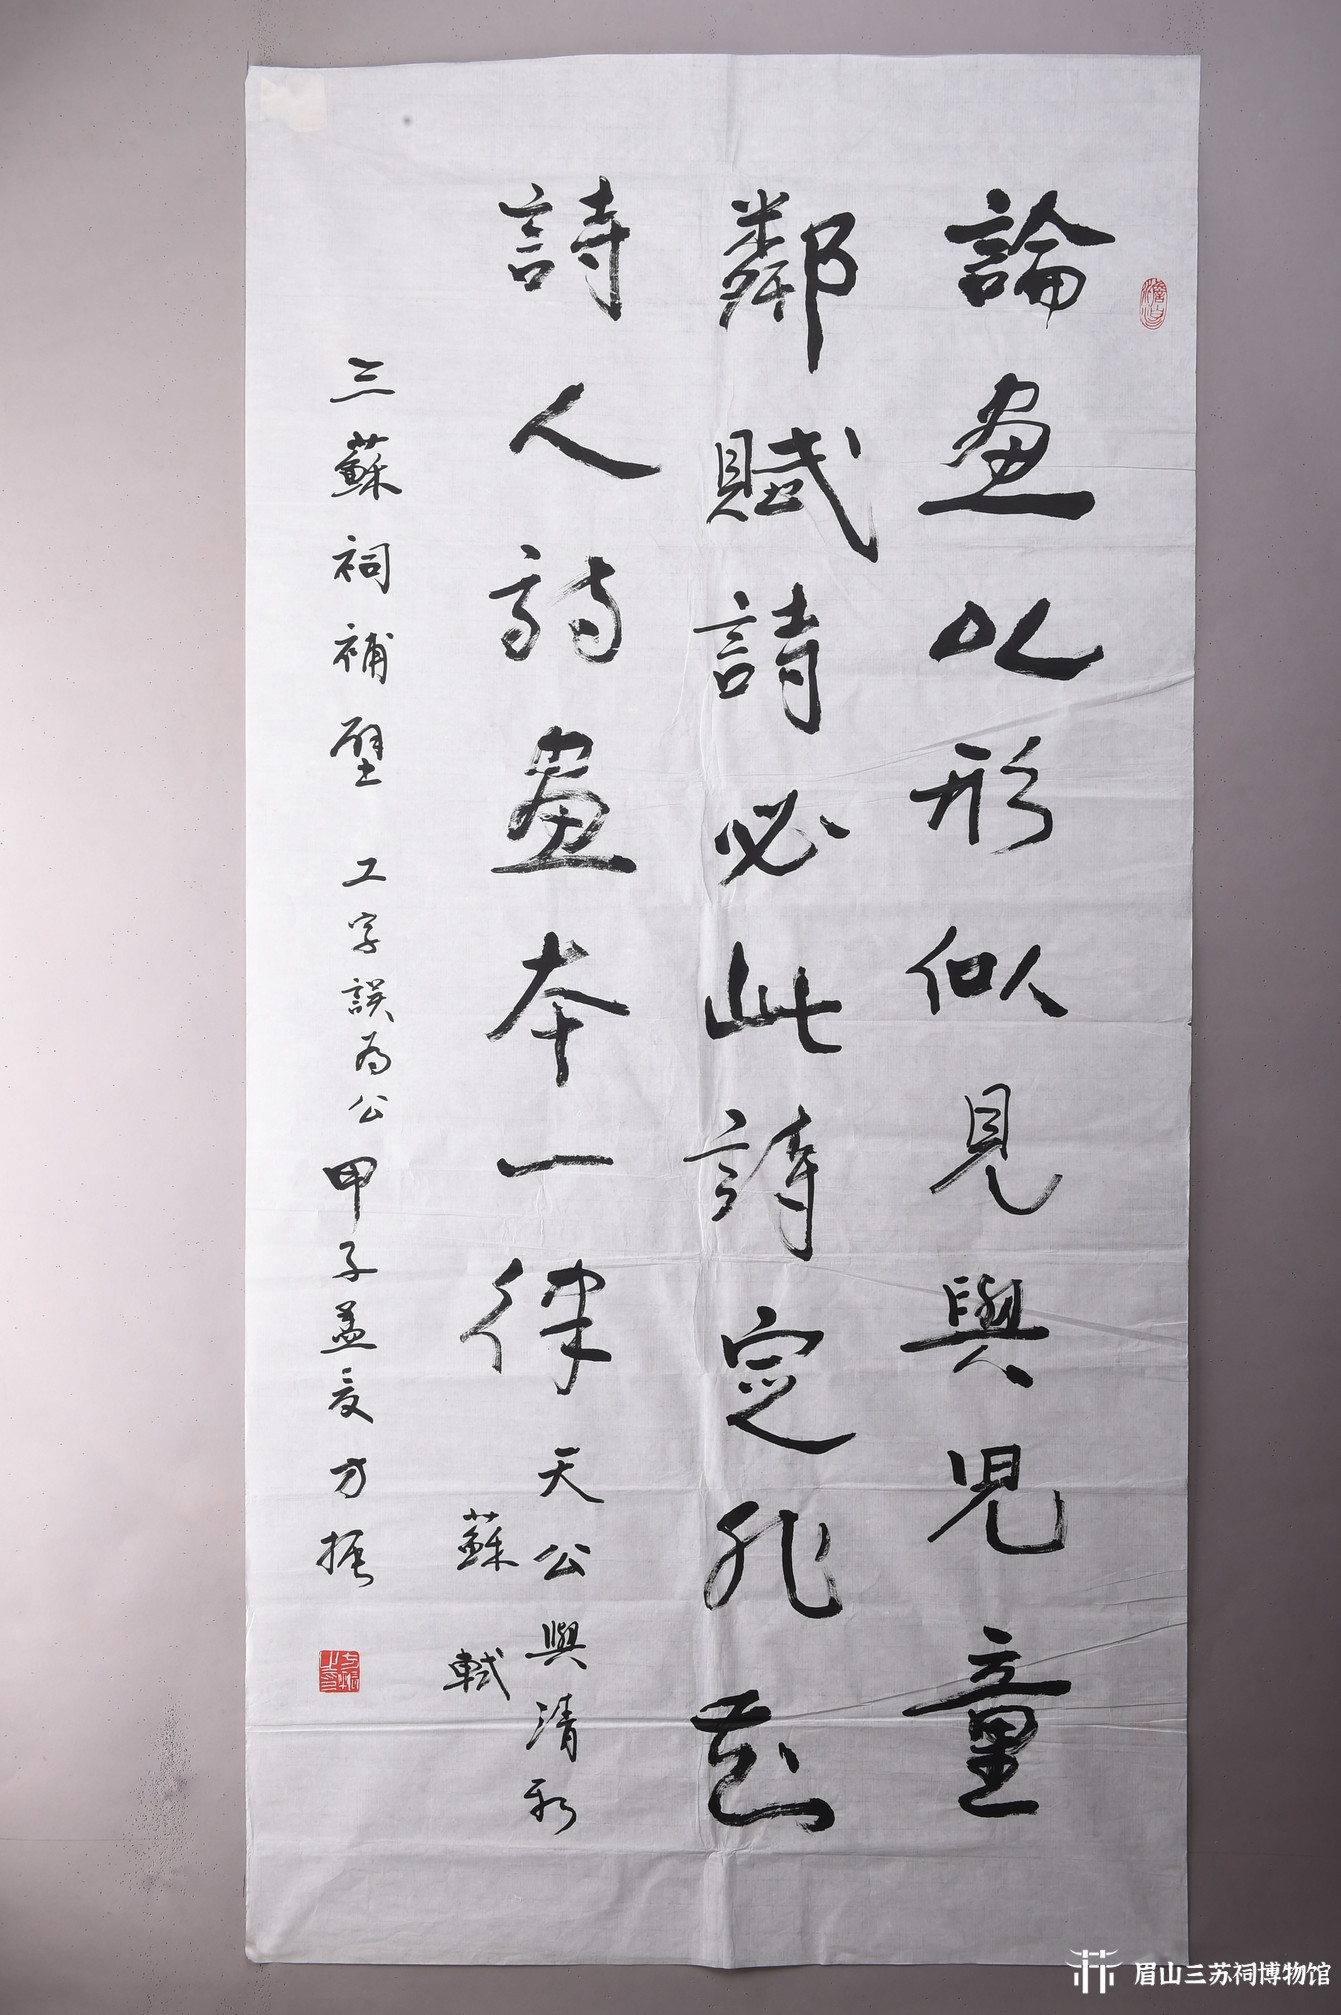 論畫以形似見與兒童
鄰賦詩必此詩定非知
詩人詩畫本一律天公與清新
蘇軾
三蘇祠補壁 工字誤為公 甲子孟夏 方振
眉山三苏祠博物馆